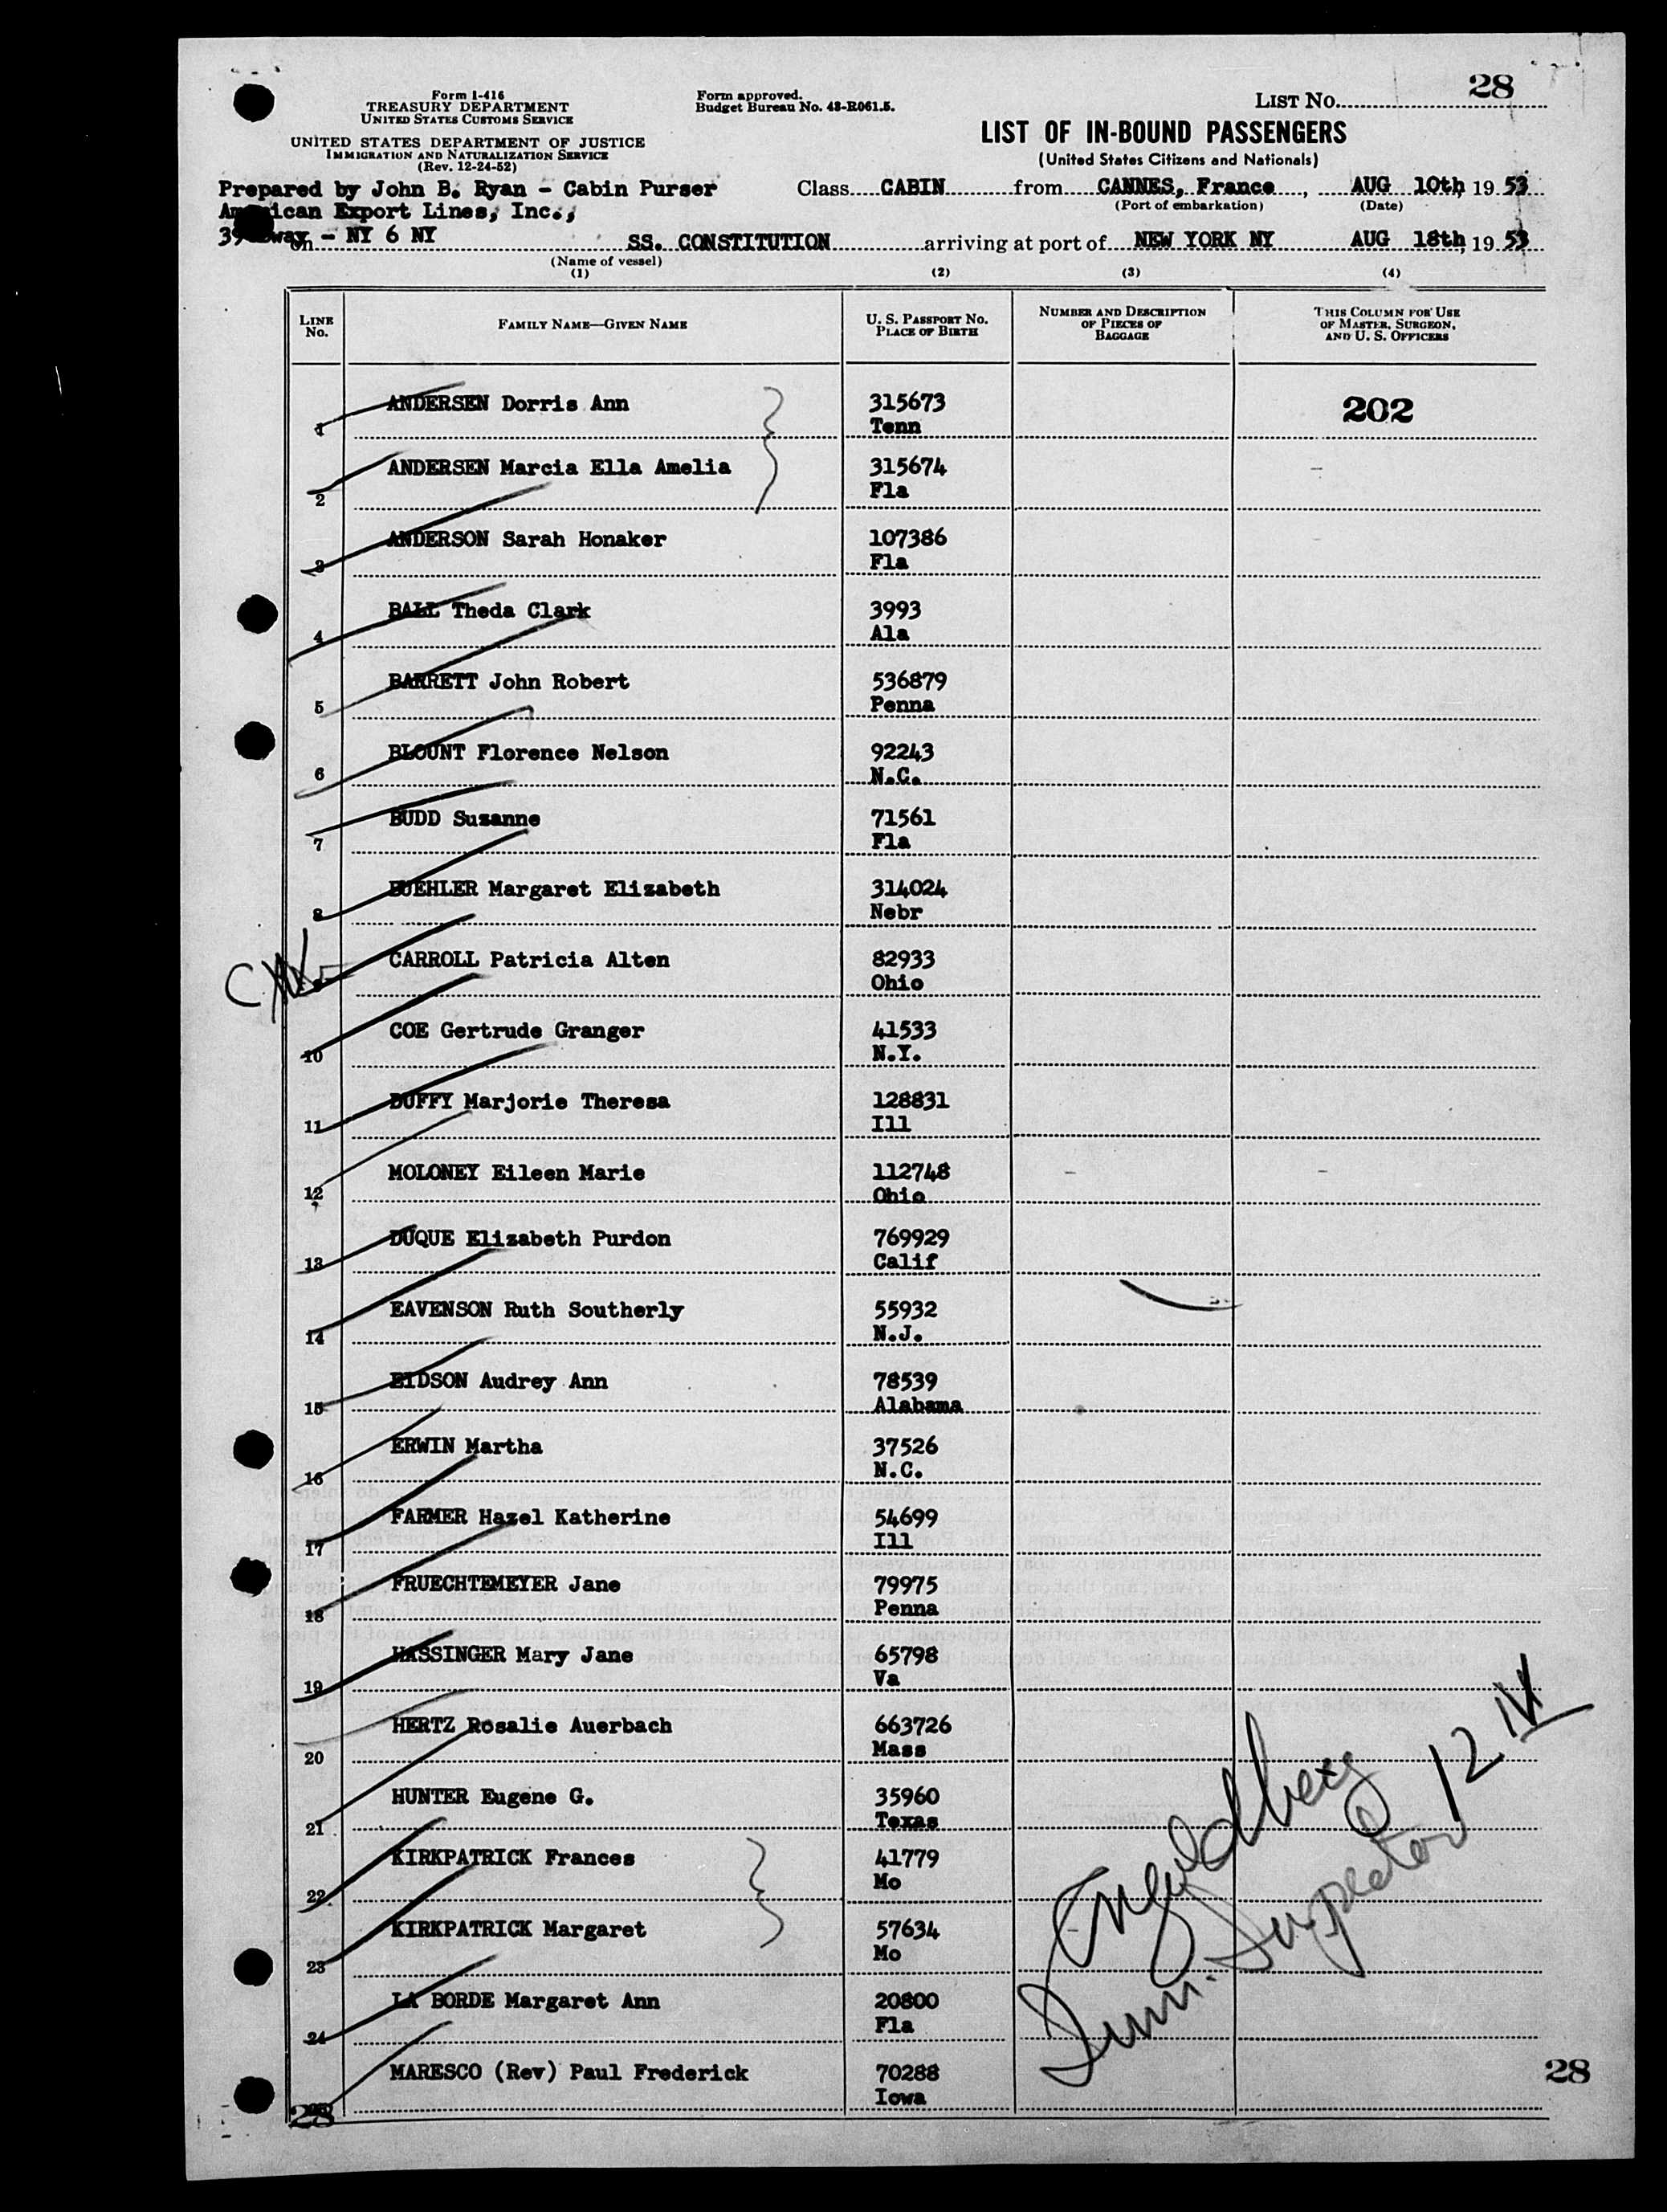 28
Form 1-416
TREASURY DEPARTMENT
UNITED STATES CUSTOMS SERVICE
UNITED STATES DEPARTMENT OF JUSTICE
IMMIGRATION AND NATURALIZATION SERVICE
(Rev. 12-24-52)
Form approved.
Budget Bureau No. 43-R061.5.
LIST NO.
LIST OF IN-BOUND PASSENGERS
(United States Citizens and Nationals)
Prepared by John B. Ryan - Cabin Purser
Class CABIN from CANNES, France, AUG 10th, 1953
(Port of embarkation) (Date)
American Export Lines, Inc.,
39 way - NY 6 NY
on SS. CONSTITUTION arriving at port of NEW YORK NY AUG 18th, 1953
(Name of vessel)
(1) (2) (3) (4)
LINE NO. FAMILY NAME—GIVEN NAME U. S. PASSPORT NO. PLACE OF BIRTH NUMBER AND DESCRIPTION OF PIECES OF BAGGAGE THIS COLUMN FOR USE OF MASTER, SURGEON, AND U. S. OFFICERS
ANDERSEN Dorris Ann 315673 202
1 Tenn
ANDERSEN Marcia Ella Amelia 315674
2 Fla
ANDERSON Sarah Honaker 107386
3 Fla
BALL Theda Clark 3993
4 Ala
BARRETT John Robert 536879
5 Penna
BLOUNT Florence Nelson 92243
6 N.C.
BUDD Suzanne 71561
7 Fla
BUEHLER Margaret Elizabeth 314024
8 Nebr
CARROLL Patricia Alten 82933
9 Ohio
COE Gertrude Granger 41533
10 N.Y.
DUFFY Marjorie Theresa 128831
11 Ill
MOLONEY Eileen Marie 112748
12 Ohio
DUQUE Elizabeth Purdon 769929
13 Calif
EAVENSON Ruth Southerly 55932
14 N.J.
EIDSON Audrey Ann 78539
15 Alabama
ERWIN Martha 37526
16 N.C.
FARMER Hazel Katherine 54699
17 Ill
FRUECHTEMEYER Jane 79975
18 Penna
HASSINGER Mary Jane 65798
19 Va
HERTZ Rosalie Auerbach 663726
20 Mass
HUNTER Eugene G. 35960
21 Texas
KIRKPATRICK Frances 41779
22 Mo
KIRKPATRICK Margaret 57634
23 Mo
LA BORDE Margaret Ann 20800
24 Fla
MARESCO (Rev) Paul Frederick 70288
25 Iowa
Imm. Inspector
28
28